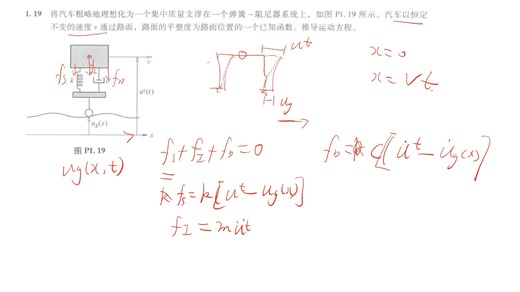 1. 19 将汽车粗略地理想化为一个集中质量支撑在一个弹簧－阻尼器系统上，如图 P1. 19 所示。汽车以恒定
不变的速度 v 通过路面，路面的平整度为路面位置的一个已知函数。推导运动方程。
u^t
x=0
x=vt.
m
f_s
k
c
f_D
v
u^t(t)
u_g
u_g(x)
x
图 P1. 19
u_g(x,t)
f_s+f_I+f_D=0
f_D=c[u̇^t-u̇_g(x)]
f_s=k[u^t-u_g(x)]
f_I=mü^t